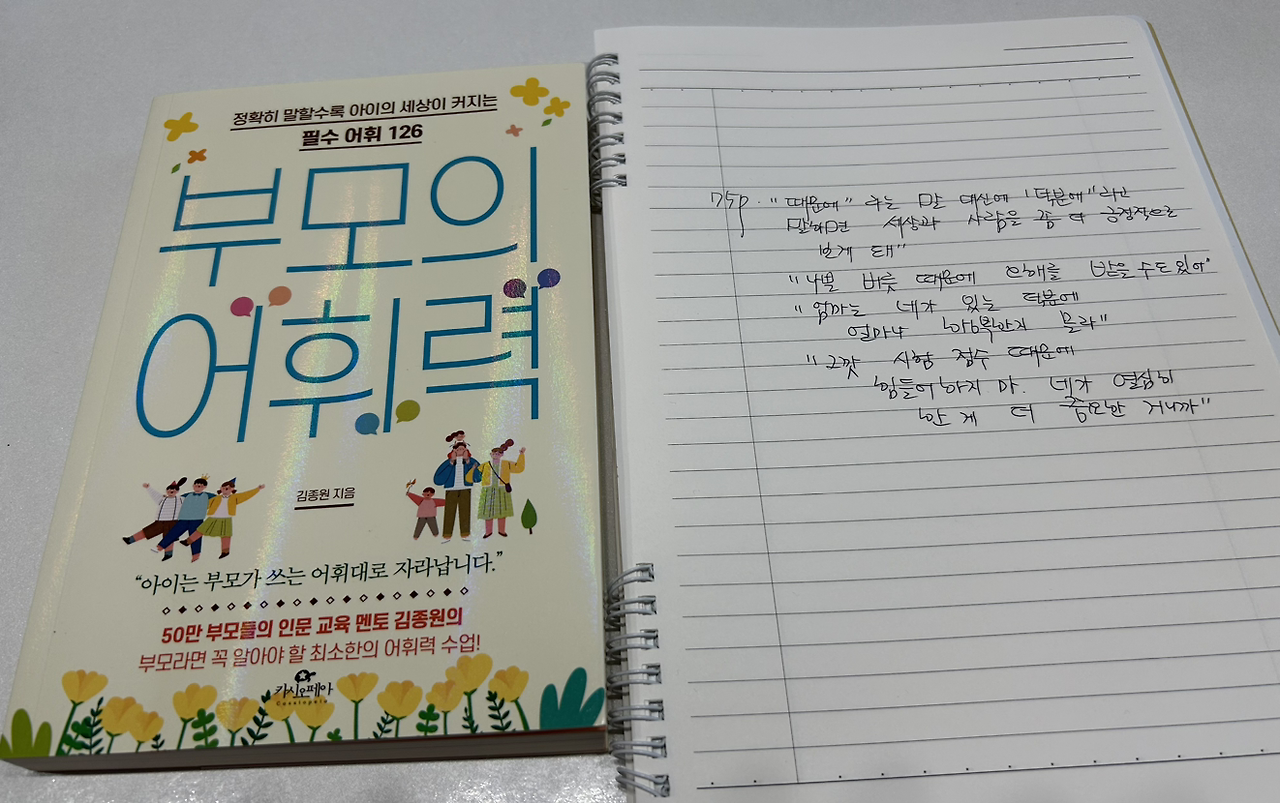 정확히 말할수록 아이의 세상이 커지는
필수 어휘 126
부모의
어휘력
김종원 지음
“아이는 부모가 쓰는 어휘대로 자라납니다.”
50만 부모들의 인문 교육 멘토 김종원의
부모라면 꼭 알아야 할 최소한의 어휘력 수업!
카시오페아
Cassiopeia
75p. "때문에" 라는 말 대신에 '덕분에" 라고
말하면 세상과 사람을 좀 더 긍정적으로
보게 돼"
"나쁜 버릇 때문에 오해를 받을 수도 있어"
"엄마는 네가 있는 덕분에
얼마나 행복한지 몰라"
"그깟 시험 점수 때문에
힘들어 하지 마. 네가 열심히
한 게 더 중요한 거니까"